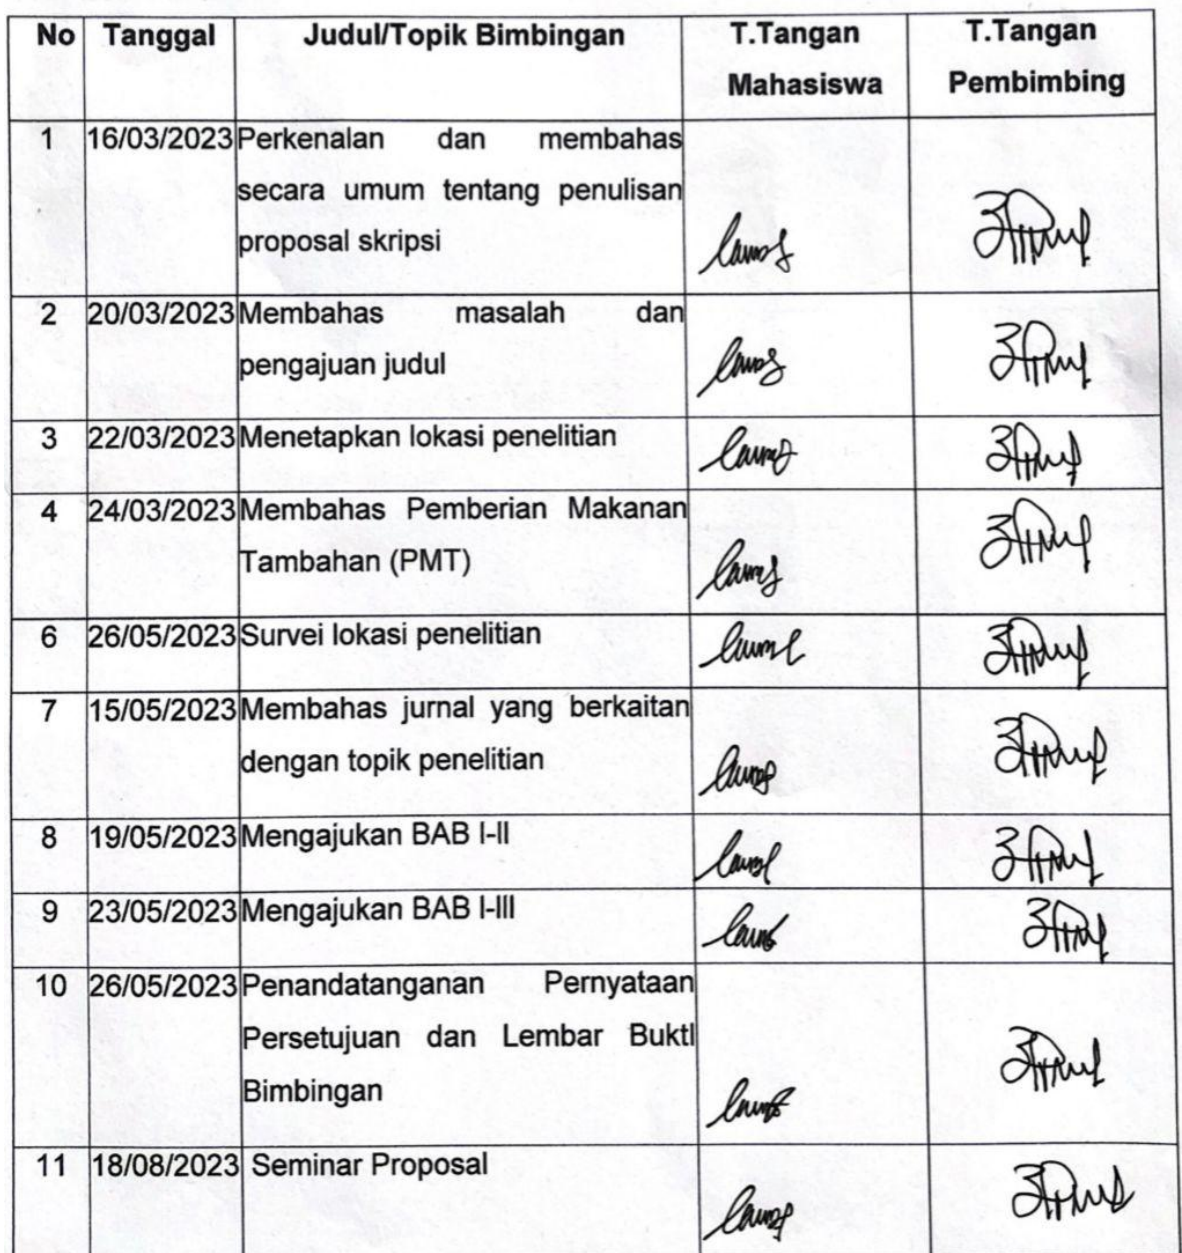 No Tanggal Judul/Topik Bimbingan T.Tangan T.Tangan
Mahasiswa Pembimbing
1 16/03/2023 Perkenalan dan membahas
secara umum tentang penulisan
proposal skripsi
2 20/03/2023 Membahas masalah dan
pengajuan judul
3 22/03/2023 Menetapkan lokasi penelitian
4 24/03/2023 Membahas Pemberian Makanan
Tambahan (PMT)
6 26/05/2023 Survei lokasi penelitian
7 15/05/2023 Membahas jurnal yang berkaitan
dengan topik penelitian
8 19/05/2023 Mengajukan BAB I-II
9 23/05/2023 Mengajukan BAB I-III
10 26/05/2023 Penandatanganan Pernyataan
Persetujuan dan Lembar BuktI
Bimbingan
11 18/08/2023 Seminar Proposal